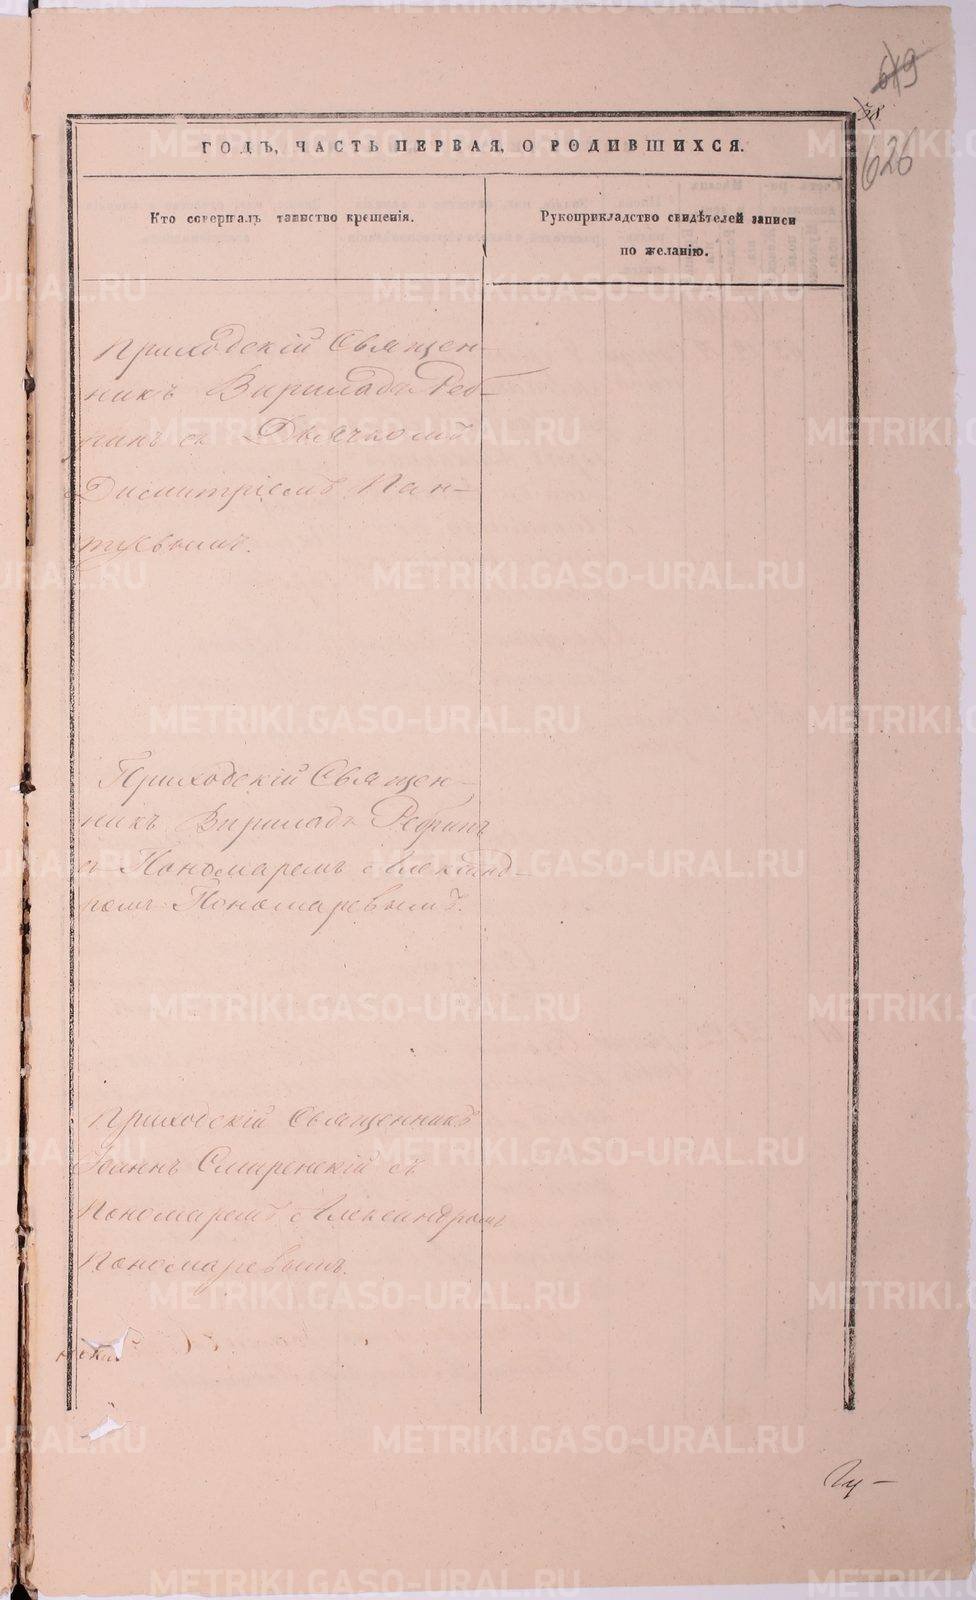 619
38
626
ГОДЪ, ЧАСТЬ ПЕРВАЯ, О РОДИВШИХСЯ.
Кто совершалъ таинство крещенія.
Рукоприкладство свидѣтелей записи
по желанію.
Приходскій Священ-
никъ Вириладъ Реб-
ринъ съ Дьячкомъ
Димитріемъ Пан-
туевымъ.
Приходскій Священ-
никъ Вириладъ
съ Пономаремъ Александ-
ромъ Пономаревымъ.
Приходскій Священникъ
Іоаннъ Смиренскій съ
Пономаремъ Александромъ
Пономаревымъ.
METRIKI.GASO-URAL.RU